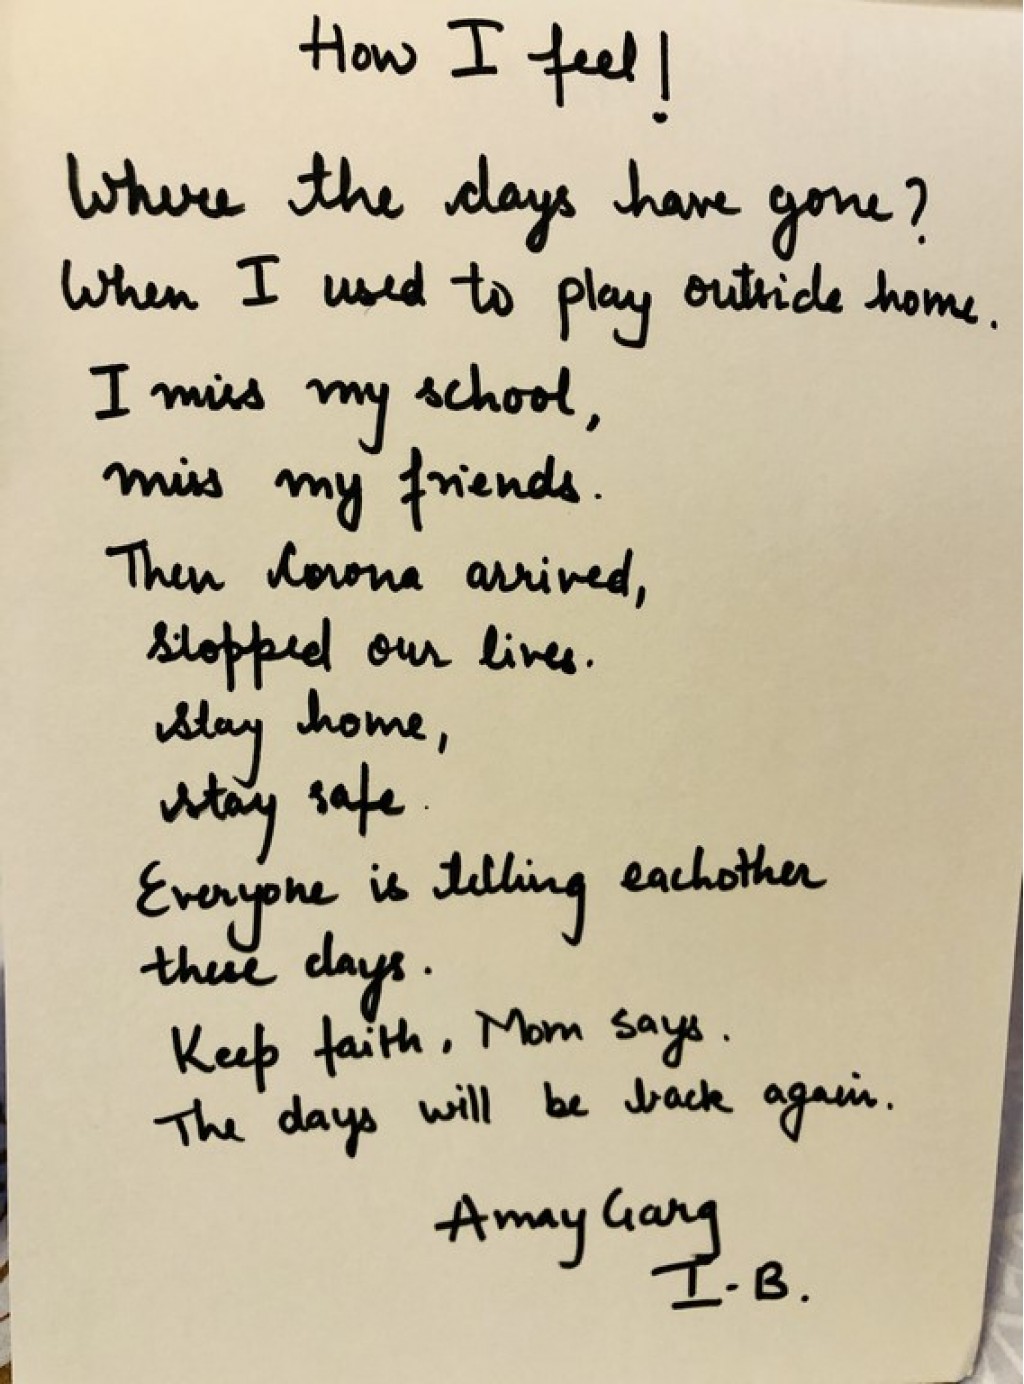 How I feel!
Where the days have gone?
When I used to play outside home.
I miss my school,
miss my friends.
Then Corona arrived,
stopped our lives.
stay home,
stay safe.
Everyone is telling eachother
these days.
Keep faith, Mom says.
The days will be back again.
Amay Garg
I-B.